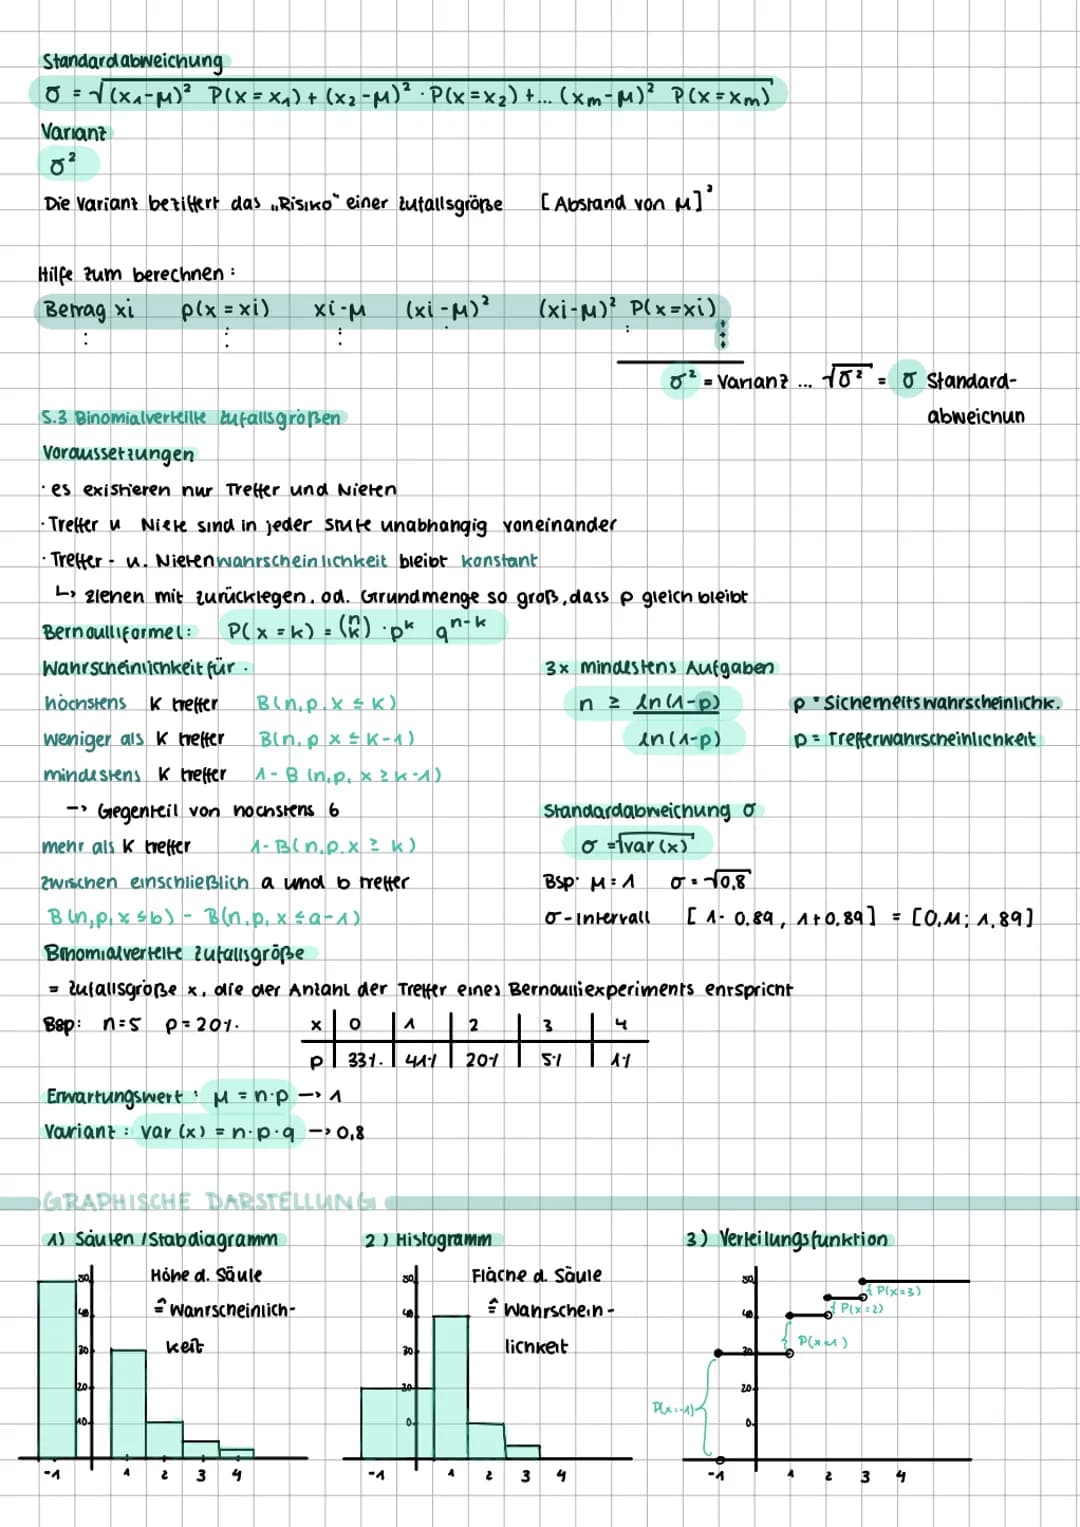 Standardabweichung
σ = √(x₁-μ)² P(x=x₁) + (x₂-μ)² · P(x=x₂) + ... (xm-μ)² P(x=xm)
Varianz
σ²
Die Varianz beziffert das „Risiko" einer Zufallsgröße [Abstand von μ]²
Hilfe zum berechnen :
Betrag xi p(x=xi) xi-μ (xi-μ)² (xi-μ)² P(x=xi)
σ² = Varianz ... √σ² = σ Standard-
abweichun
5.3 Binomialverteilte Zufallsgrößen
Voraussetzungen
· es existieren nur Treffer und Nieten
· Treffer u Niete sind in jeder Stufe unabhängig voneinander
· Treffer- u. Nietenwahrscheinlichkeit bleibt konstant
↳ ziehen mit zurücklegen. od. Grundmenge so groß, dass p gleich bleibt
Bernoulliformel: P(x=k) = (n k) · pᵏ qⁿ⁻ᵏ
Wahrscheinlichkeit für .
höchstens K treffer B(n,p.x ≤ K)
weniger als K treffer B(n.p x ≤ K-1)
mindestens K treffer 1- B (n,p, x ≥ k-1)
-> Gegenteil von höchstens 6
mehr als K treffer 1- B(n,p.x ≥ k)
zwischen einschließlich a und b treffer
B(n,p, x ≤ b) - B(n,p, x ≤ a-1)
3x mindestens Aufgaben
n ≥ ln(1-p) p = Sicherheitswahrscheinlichk.
ln(1-p) p = Trefferwahrscheinlichkeit
Standardabweichung σ
σ = √var(x)
Bsp: μ = 1 σ = √0,8
σ-Intervall [1- 0.89, 1+0,89] = [0,11; 1,89]
Binomialverteilte Zufallsgröße
= Zufallsgröße x, die der Anzahl der Treffer eines Bernoulliexperiments entspricht
Bsp: n=5 p=20%.
x 0 1 2 3 4
p 33%. 41% 20% 5% 1%
Erwartungswert : μ = n·p -> 1
Varianz : var (x) = n·p·q -> 0,8
GRAPHISCHE DARSTELLUNG
1) Säulen /Stabdiagramm
Höhe d. Säule
≙ Wahrscheinlich-
keit
50
40
30
20
10
-1 1 2 3 4
2) Histogramm
Fläche d. Säule
≙ Wahrschein-
lichkeit
50
40
30
20
0
-1 1 2 3 4
3) Verteilungsfunktion
50
40
30
20
0
P(x=3)
P(x=2)
P(x=1)
P(x=-1)
-1 1 2 3 4